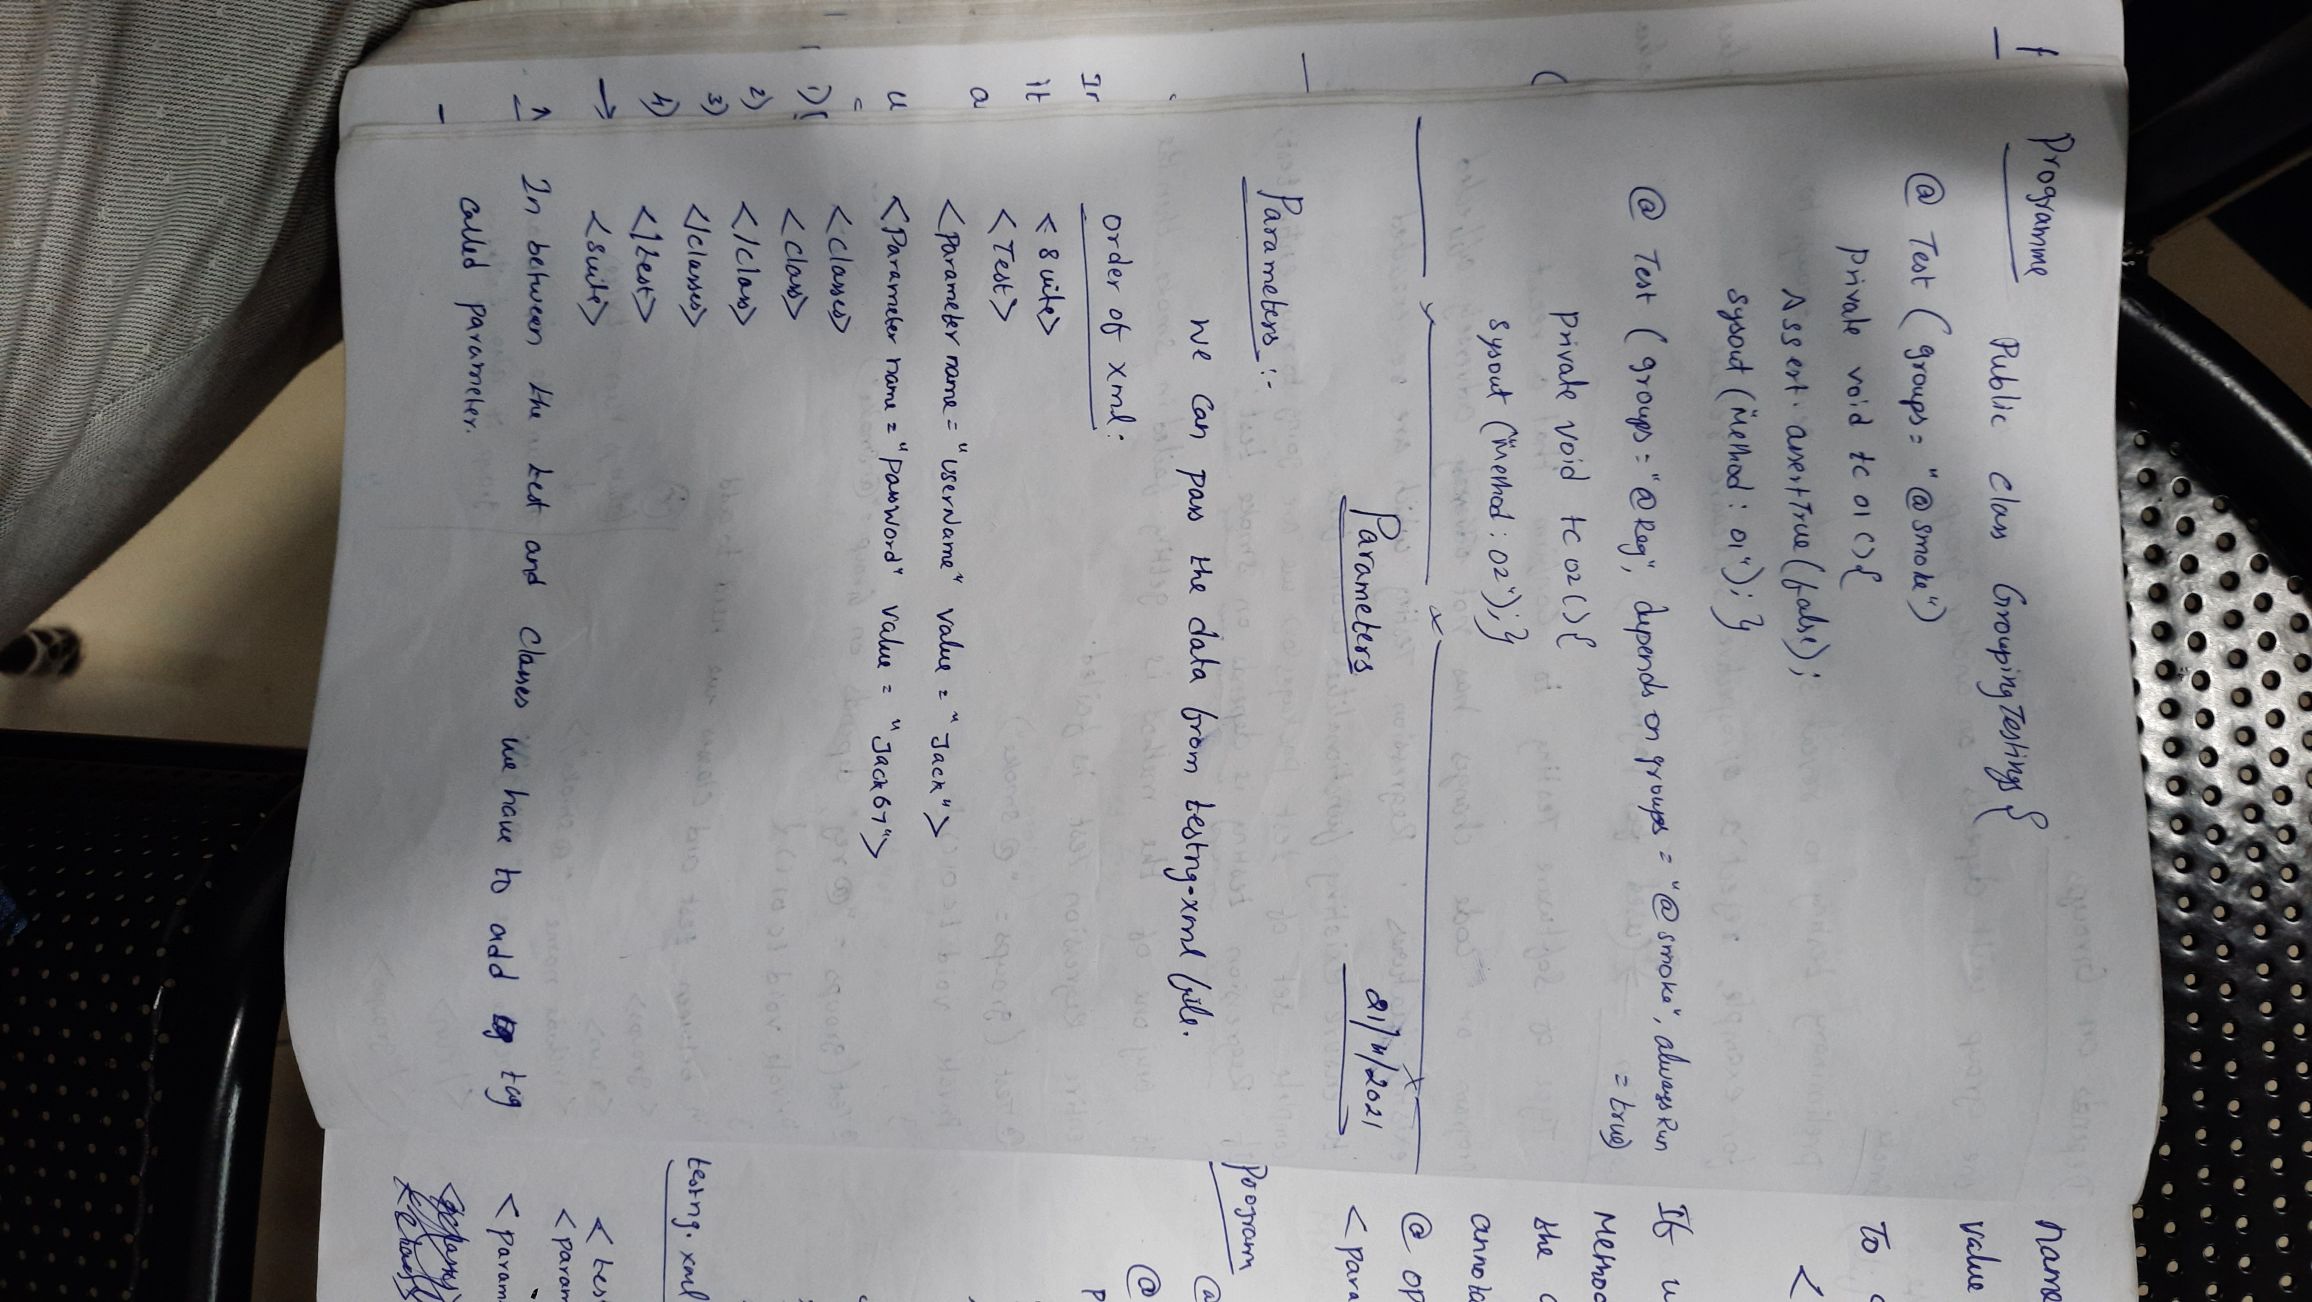 Programme
Public class GroupingTestings{
@ Test ( groups = "@smoke")
private void tc 01 () {
Assert. assertTrue (false);
sysout ("Method : 01"); }
@ Test ( groups = "@Reg", depends on groups = "@smoke", always Run
= true)
private void tc 02 () {
sysout ("Method : 02"); }
Parameters
21/4/2021
Parameters :-
We can pass the data from testng.xml file.
order of xml :
<suite>
<Test>
<parameter name = "userName" value = "Jack">
<Parameter name = "password" value = "Jack67">
<classes>
<class>
</class>
</classes>
</test>
<suite>
In between the test and classes we have to add tag
called parameter.
name
value
To
<
If
Method
the
annota
@ op
< para
Program
@
@
P
testng. xml
< tes
< param
< param
Ir
it
a
u
1)
2)
3)
4)